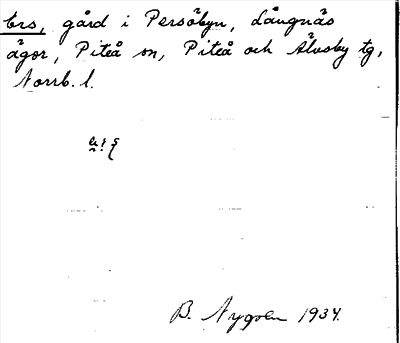 Ers, gård i Persöbyn, Långnäs
ägor, Piteå sn, Piteå och Älvsby tg,
Norrb. l.
B. Nygren 1934.